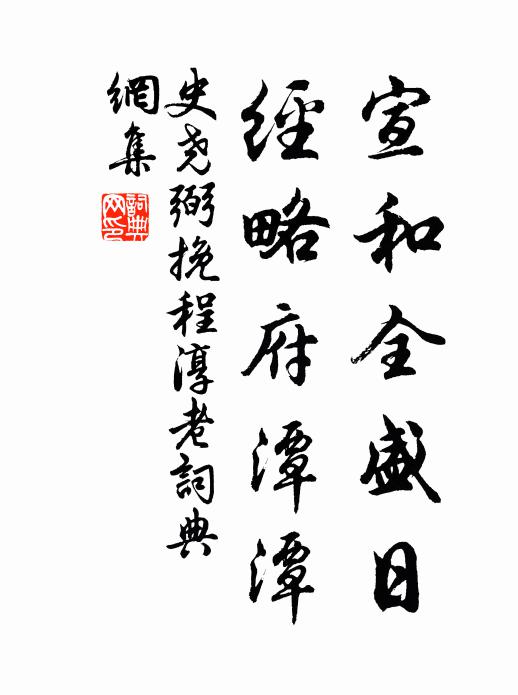 宣和全盛日
經略府潭潭
史尧弼挽程淳老詞典
網集
詞典
网印